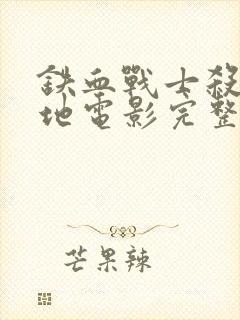 鐵血戰士殺
地電影完整
芒果辣